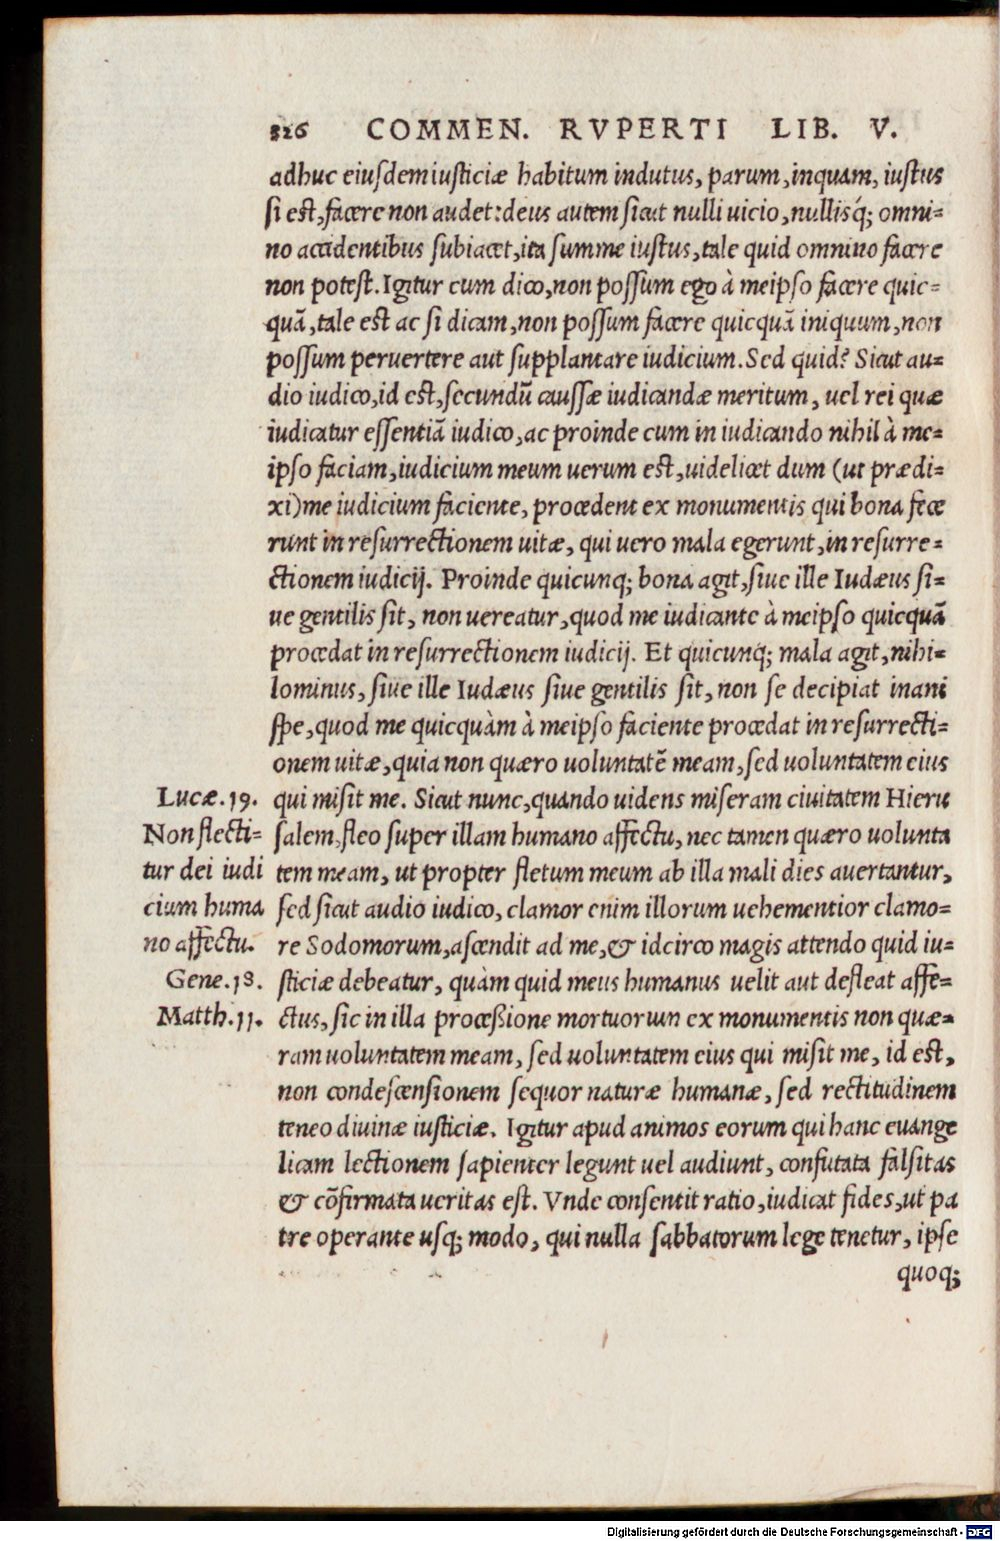 326 COMMEN. RVPERTI LIB. V.
adhuc eiusdem iusticiæ habitum indutus, parum, inquam, iustus
si est, facere non audet: deus autem sicut nulli uicio, nullisq́; omni=
no accidentibus subiacet, ita summe iustus, tale quid omnino facere
non potest. Igitur cum dico, non possum ego à meipso facere quic=
quā, tale est ac si dicam, non possum facere quicquā iniquum, non
possum peruertere aut supplantare iudicium. Sed quid? Sicut au=
dio iudico, id est, secundū caussæ iudicandæ meritum, uel rei quæ
iudicatur essentiā iudico, ac proinde cum in iudicando nihil à me=
ipso faciam, iudicium meum uerum est, uidelicet dum (ut prædi=
xi) me iudicium faciente, procedent ex monumentis qui bona fece
runt in resurrectionem uitæ, qui uero mala egerunt, in resurre=
ctionem iudicij. Proinde quicunq; bona agit, siue ille Iudæus si=
ue gentilis sit, non uereatur, quod me iudicante à meipso quicquā
procedat in resurrectionem iudicij. Et quicunq́; mala agit, nihi=
lominus, siue ille Iudæus siue gentilis sit, non se decipiat inani
spe, quod me quicquàm à meipso faciente procedat in resurrecti=
onem uitæ, quia non quæro uoluntatē meam, sed uoluntatem eius
Lucæ. 19. qui misit me. Sicut nunc, quando uidens miseram ciuitatem Hieru
Non flecti= salem, fleo super illam humano affectu, nec tamen quæro uolunta
tur dei iudi tem meam, ut propter fletum meum ab illa mali dies auertantur,
cium huma sed sicut audio iudico, clamor enim illorum uehementior clamo=
no affectu. re Sodomorum, ascendit ad me, & idcirco magis attendo quid iu=
Gene. 18. sticiæ debeatur, quàm quid meus humanus uelit aut defleat affe=
Matth. 11. ctus, sic in illa processione mortuorum ex monumentis non quæ=
ram uoluntatem meam, sed uoluntatem eius qui misit me, id est,
non condescensionem sequor naturæ humanæ, sed rectitudinem
teneo diuinæ iusticiæ. Igitur apud animos eorum qui hanc euange
licam lectionem sapienter legunt uel audiunt, confutata falsitas
& cōfirmata ueritas est. Vnde consentit ratio, iudicat fides, ut pa
tre operante usq; modo, qui nulla sabbatorum lege tenetur, ipse
quoq;
Digitalisierung gefördert durch die Deutsche Forschungsgemeinschaft - DFG